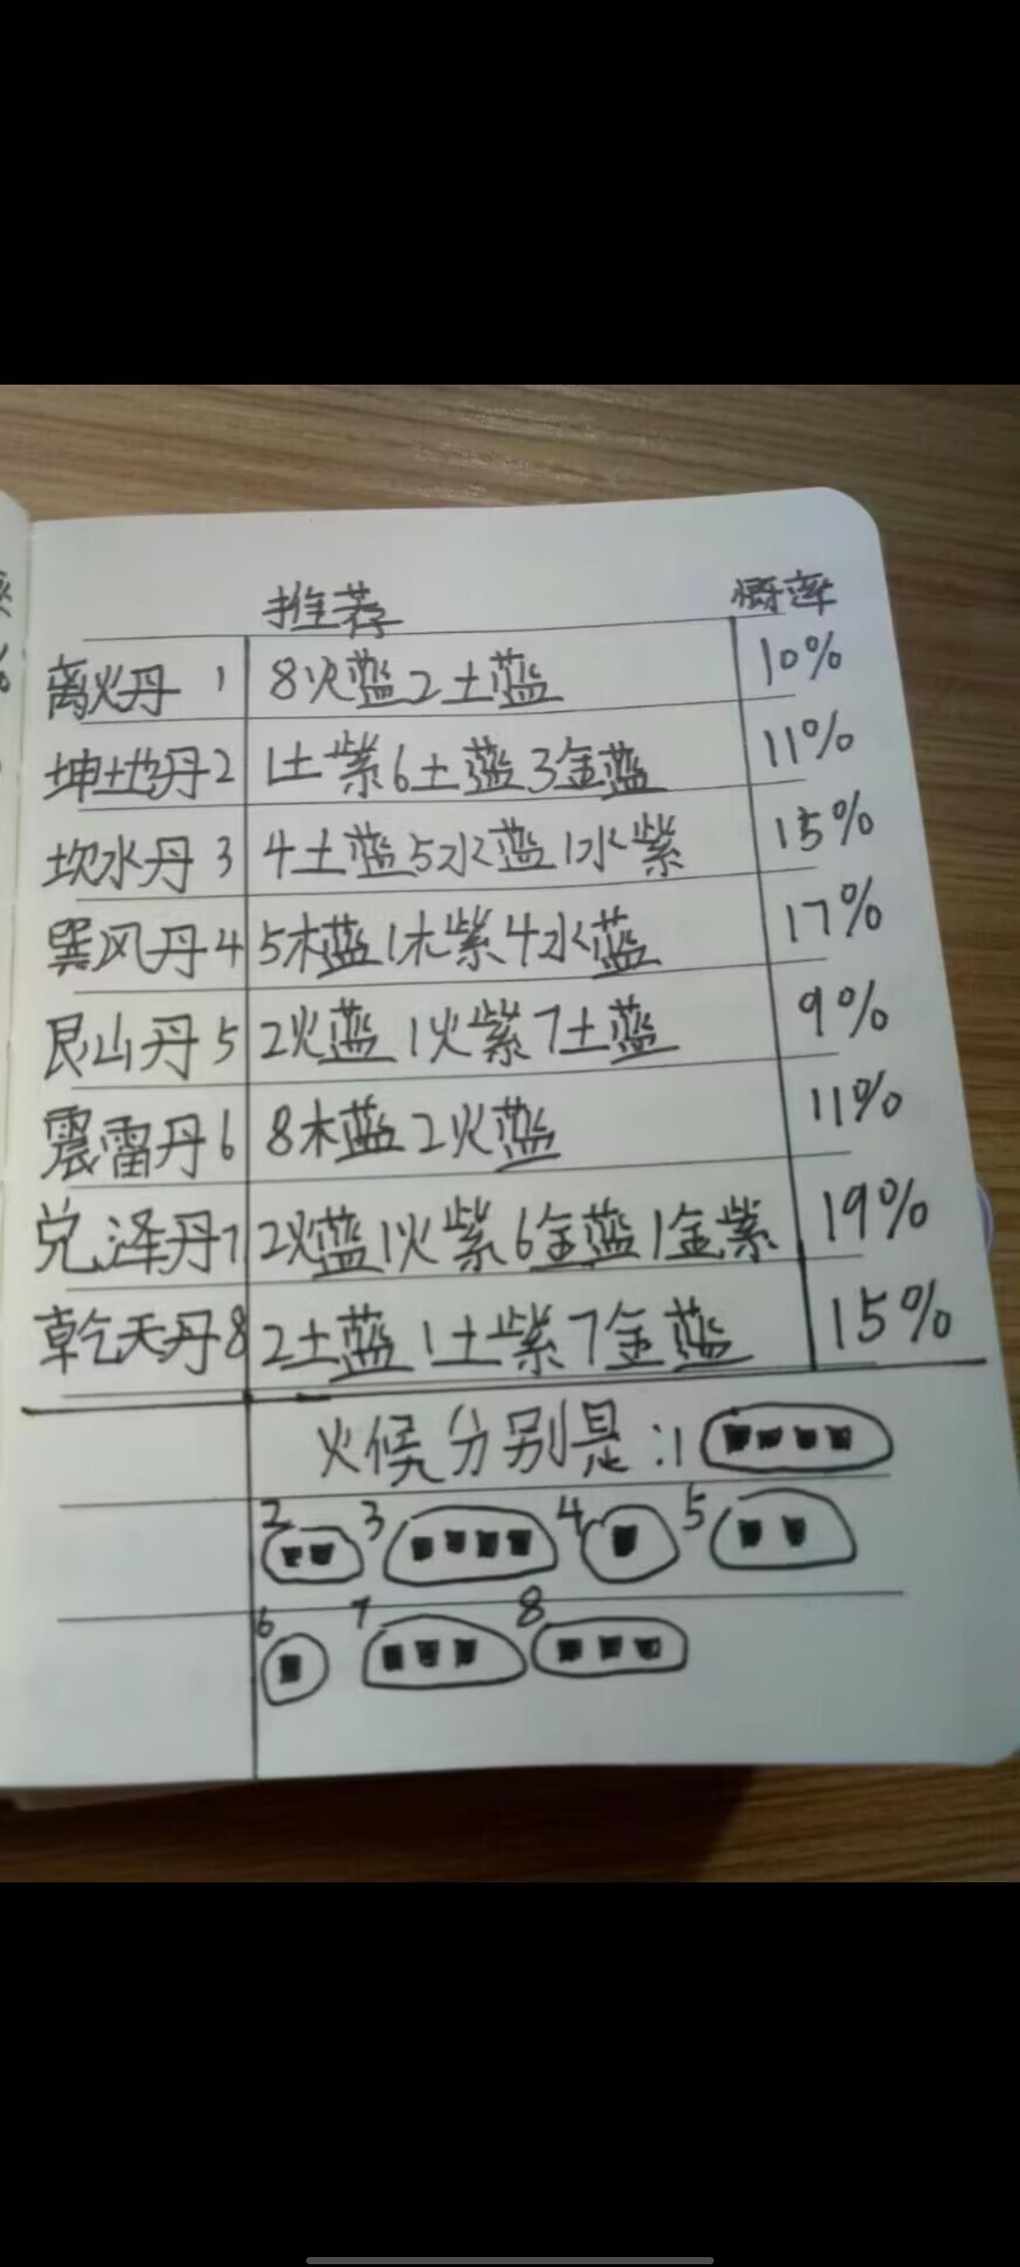 推荐 概率
离火丹 1 8火蓝2土蓝 10%
坤地丹2 1土紫6土蓝3金蓝 11%
坎水丹 3 4土蓝5水蓝1水紫 15%
巽风丹4 5木蓝1木紫4水蓝 17%
艮山丹5 2火蓝1火紫7土蓝 9%
震雷丹6 8木蓝2火蓝 11%
兑泽丹7 2火蓝1火紫6金蓝1金紫 19%
乾天丹8 2土蓝1土紫7金蓝 15%
火候分别是:1
2 3 4 5
6 7 8